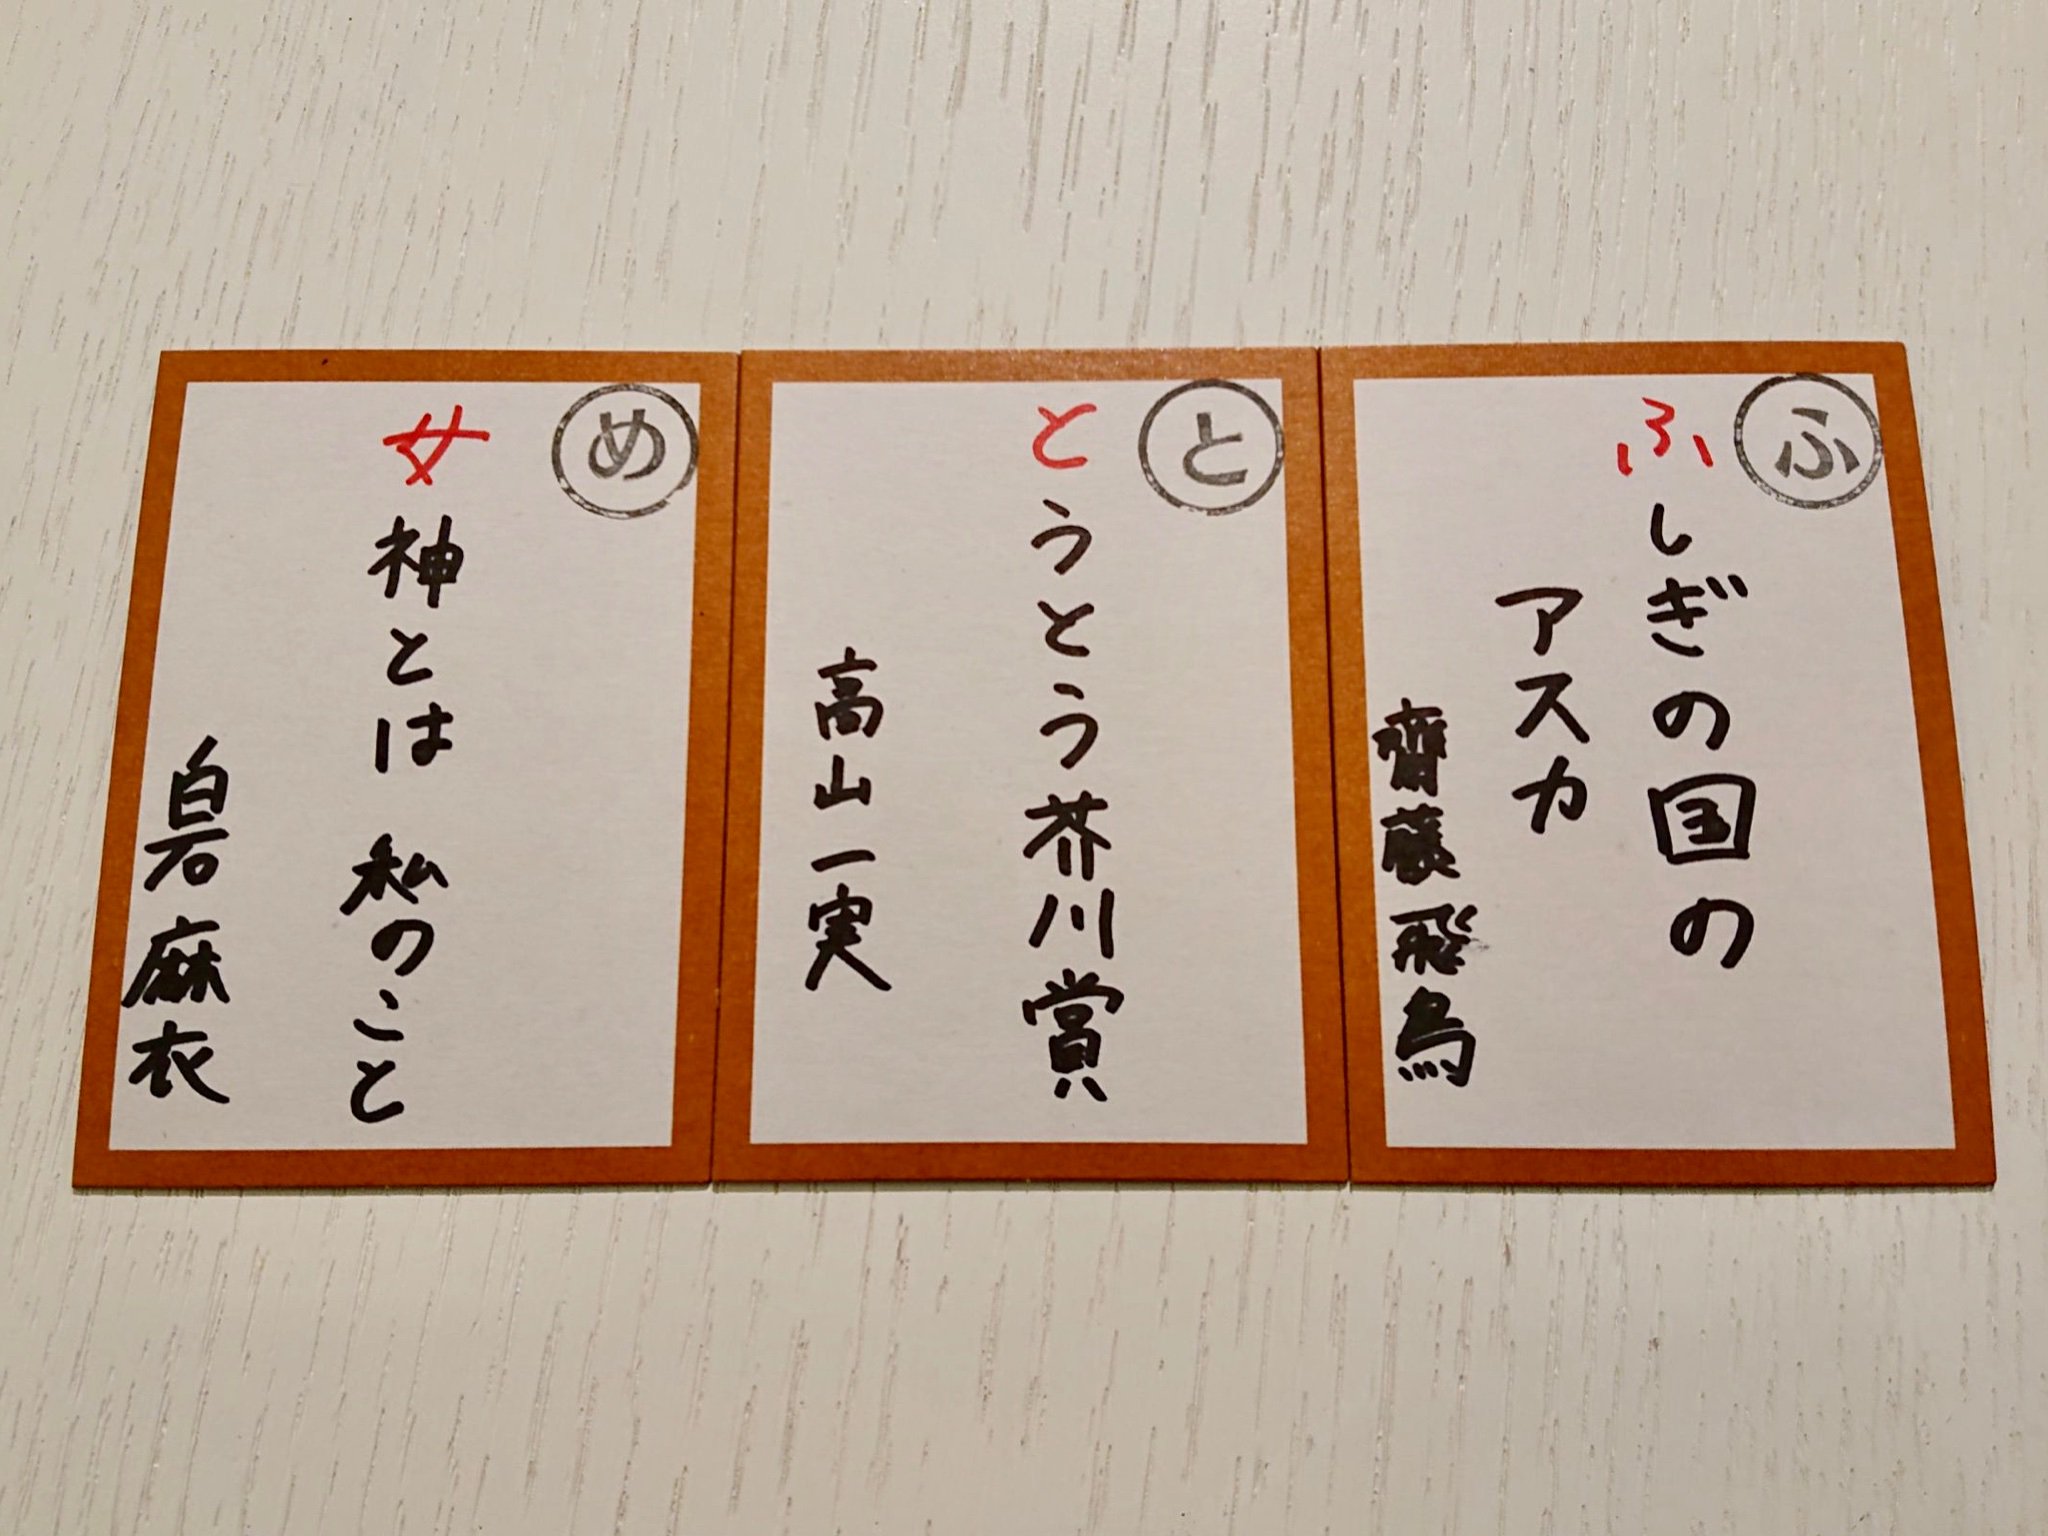 ふ
ふしぎの国の
アスカ
齋藤飛鳥
と
とうとう芥川賞
高山一実
め
女神とは 私のこと
白石麻衣